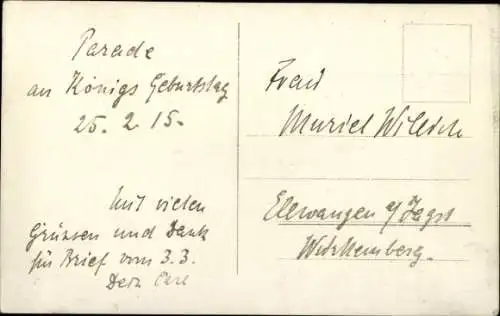 Parade
an Königs Geburtstag
25. 2. 15.
Mit vielen
Grüssen und Dank
für Brief vom 3.3.
Dein Carl
Frau
Muriel Willich
Ellwangen a/Jagst
Württemberg.